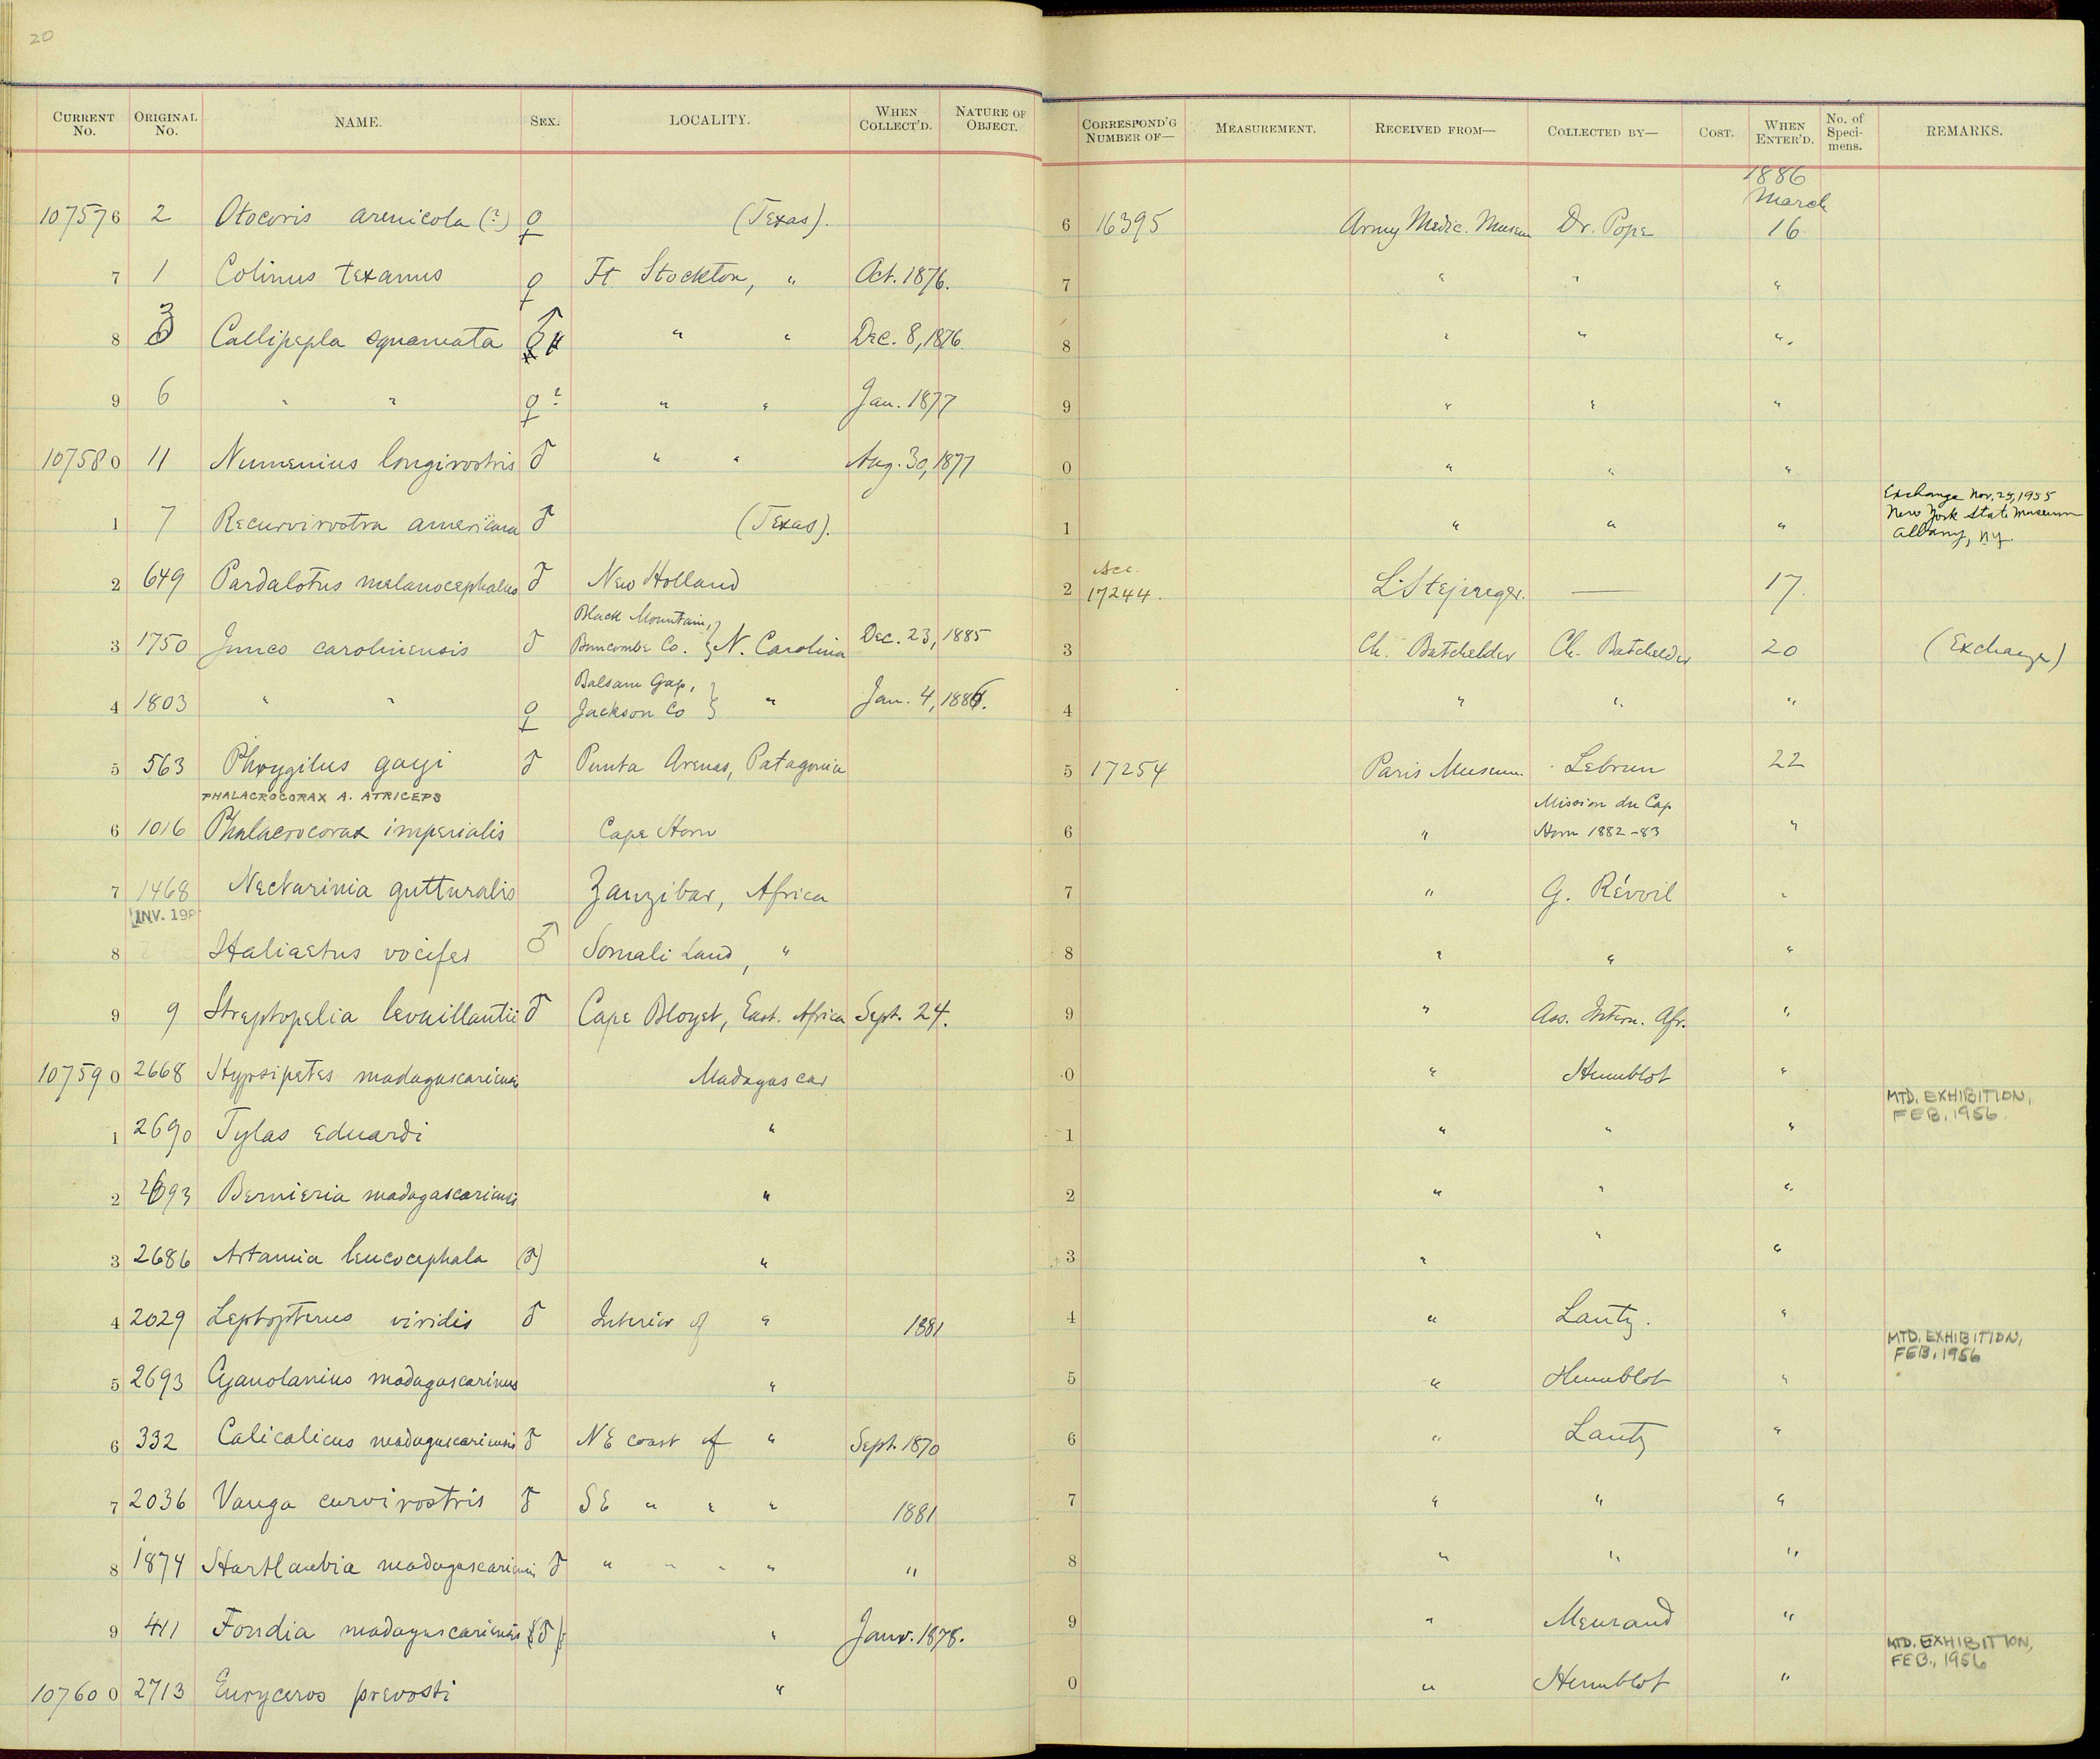 20
CURRENT No. ORIGINAL No. NAME. SEX. LOCALITY. WHEN COLLECT'D. NATURE OF OBJECT. CORRESPOND'G NUMBER OF— MEASUREMENT. RECEIVED FROM— COLLECTED BY— COST. WHEN ENTER'D. No. of Specimens. REMARKS.
1886
March
107576 2 Otocoris arenicola (?) ♀ (Texas). 6 16395 Army Medic. Museum Dr. Pope 16
7 1 Colinus texanus ♀ Ft Stockton, " Oct. 1876. 7 " " "
8 3 Callipepla squamata ♂ " " Dec. 8, 1876. 8 " " "
9 6 " " ♀? " " Jan. 1877 9 " " "
107580 11 Numenius longirostris ♂ " " Aug. 30, 1877 0 " " "
1 7 Recurvirostra americana ♂ (Texas). 1 " " " Exchange Nov. 25, 1955
New York State Museum
Albany, NY.
2 649 Pardalotus melanocephalus ♂ New Holland 2 Acc. 17244. L. Stejneger. — 17.
Black Mountain,
3 1750 Junco carolinensis ♂ Buncombe Co. } N. Carolina Dec. 23, 1885 3 Ch. Batchelder Ch. Batchelder 20 (Exchange)
Balsam Gap,
4 1803 " " ♀ Jackson Co } " Jan. 4, 1886. 4 " " "
5 563 Phrygilus gayi ♂ Punta Arenas, Patagonia 5 17254 Paris Museum. Lebrun 22
PHALACROCORAX A. ATRICEPS Mission du Cap
6 1016 Phalacrocorax imperialis Cape Horn 6 " Horn 1882-83 "
7 1468 Nectarinia gutturalis Zanzibar, Africa 7 " G. Révoil "
INV. 198
8 Haliaetus vocifer ♂ Somali Land, " 8 " " "
9 9 Streptopelia levaillantii ♂ Cape Bloyet, East. Africa Sept. 24. 9 " Ass. Intern. Afr. "
107590 2668 Hypsipetes madagascariensis Madagascar 0 " Humblot "
MTD. EXHIBITION,
FEB. 1956.
1 2690 Tylas eduardi " 1 " " "
2 2693 Bernieria madagascariensis " 2 " " "
3 2686 Artamia leucocephala (♂) " 3 " " "
4 2029 Leptopterus viridis ♂ Interior of " 1881 4 " Lantz. "
MTD. EXHIBITION,
FEB. 1956
5 2693 Cyanolanius madagascarinus " 5 " Humblot "
6 332 Calicalicus madagascariensis ♂ NE coast of " Sept. 1870 6 " Lantz "
7 2036 Vanga curvirostris ♂ SE " " " 1881 7 " " "
8 1874 Hartlaubia madagascariensis ♂ " " " " " 8 " " "
9 411 Foudia madagascariensis (♂) " Janv. 1878. 9 " Meurand "
MTD. EXHIBITION,
FEB., 1956
107600 2713 Euryceros prevosti " 0 " Humblot "